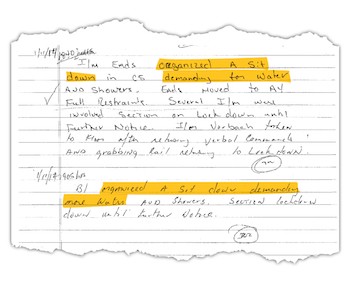 I/m Eads organized A Sit
down in C5 demanding for Water
AND Showers. Eads moved to A4
Full Restraints. Several I/m were
involved Section on Lockdown until
Further Notice. I/m Vorbach taken
to Floor after refusing verbal Commands
AND grabbing Rail refusing to Lockdown.
B1 organized A Sit down demanding
more Water AND Showers. Section lockdown
down until further Notice.